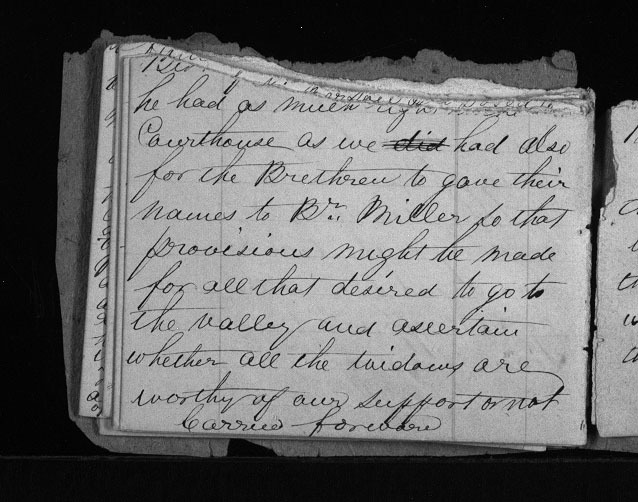 Bro
he had as much right
Courthouse as we did had also
for the Brethren to gave their
names to Br. Miller so that
provisions might be made
for all that desired to go to
the valley and ascertain
whether all the widows are
worthy of our support or not
Carried forward